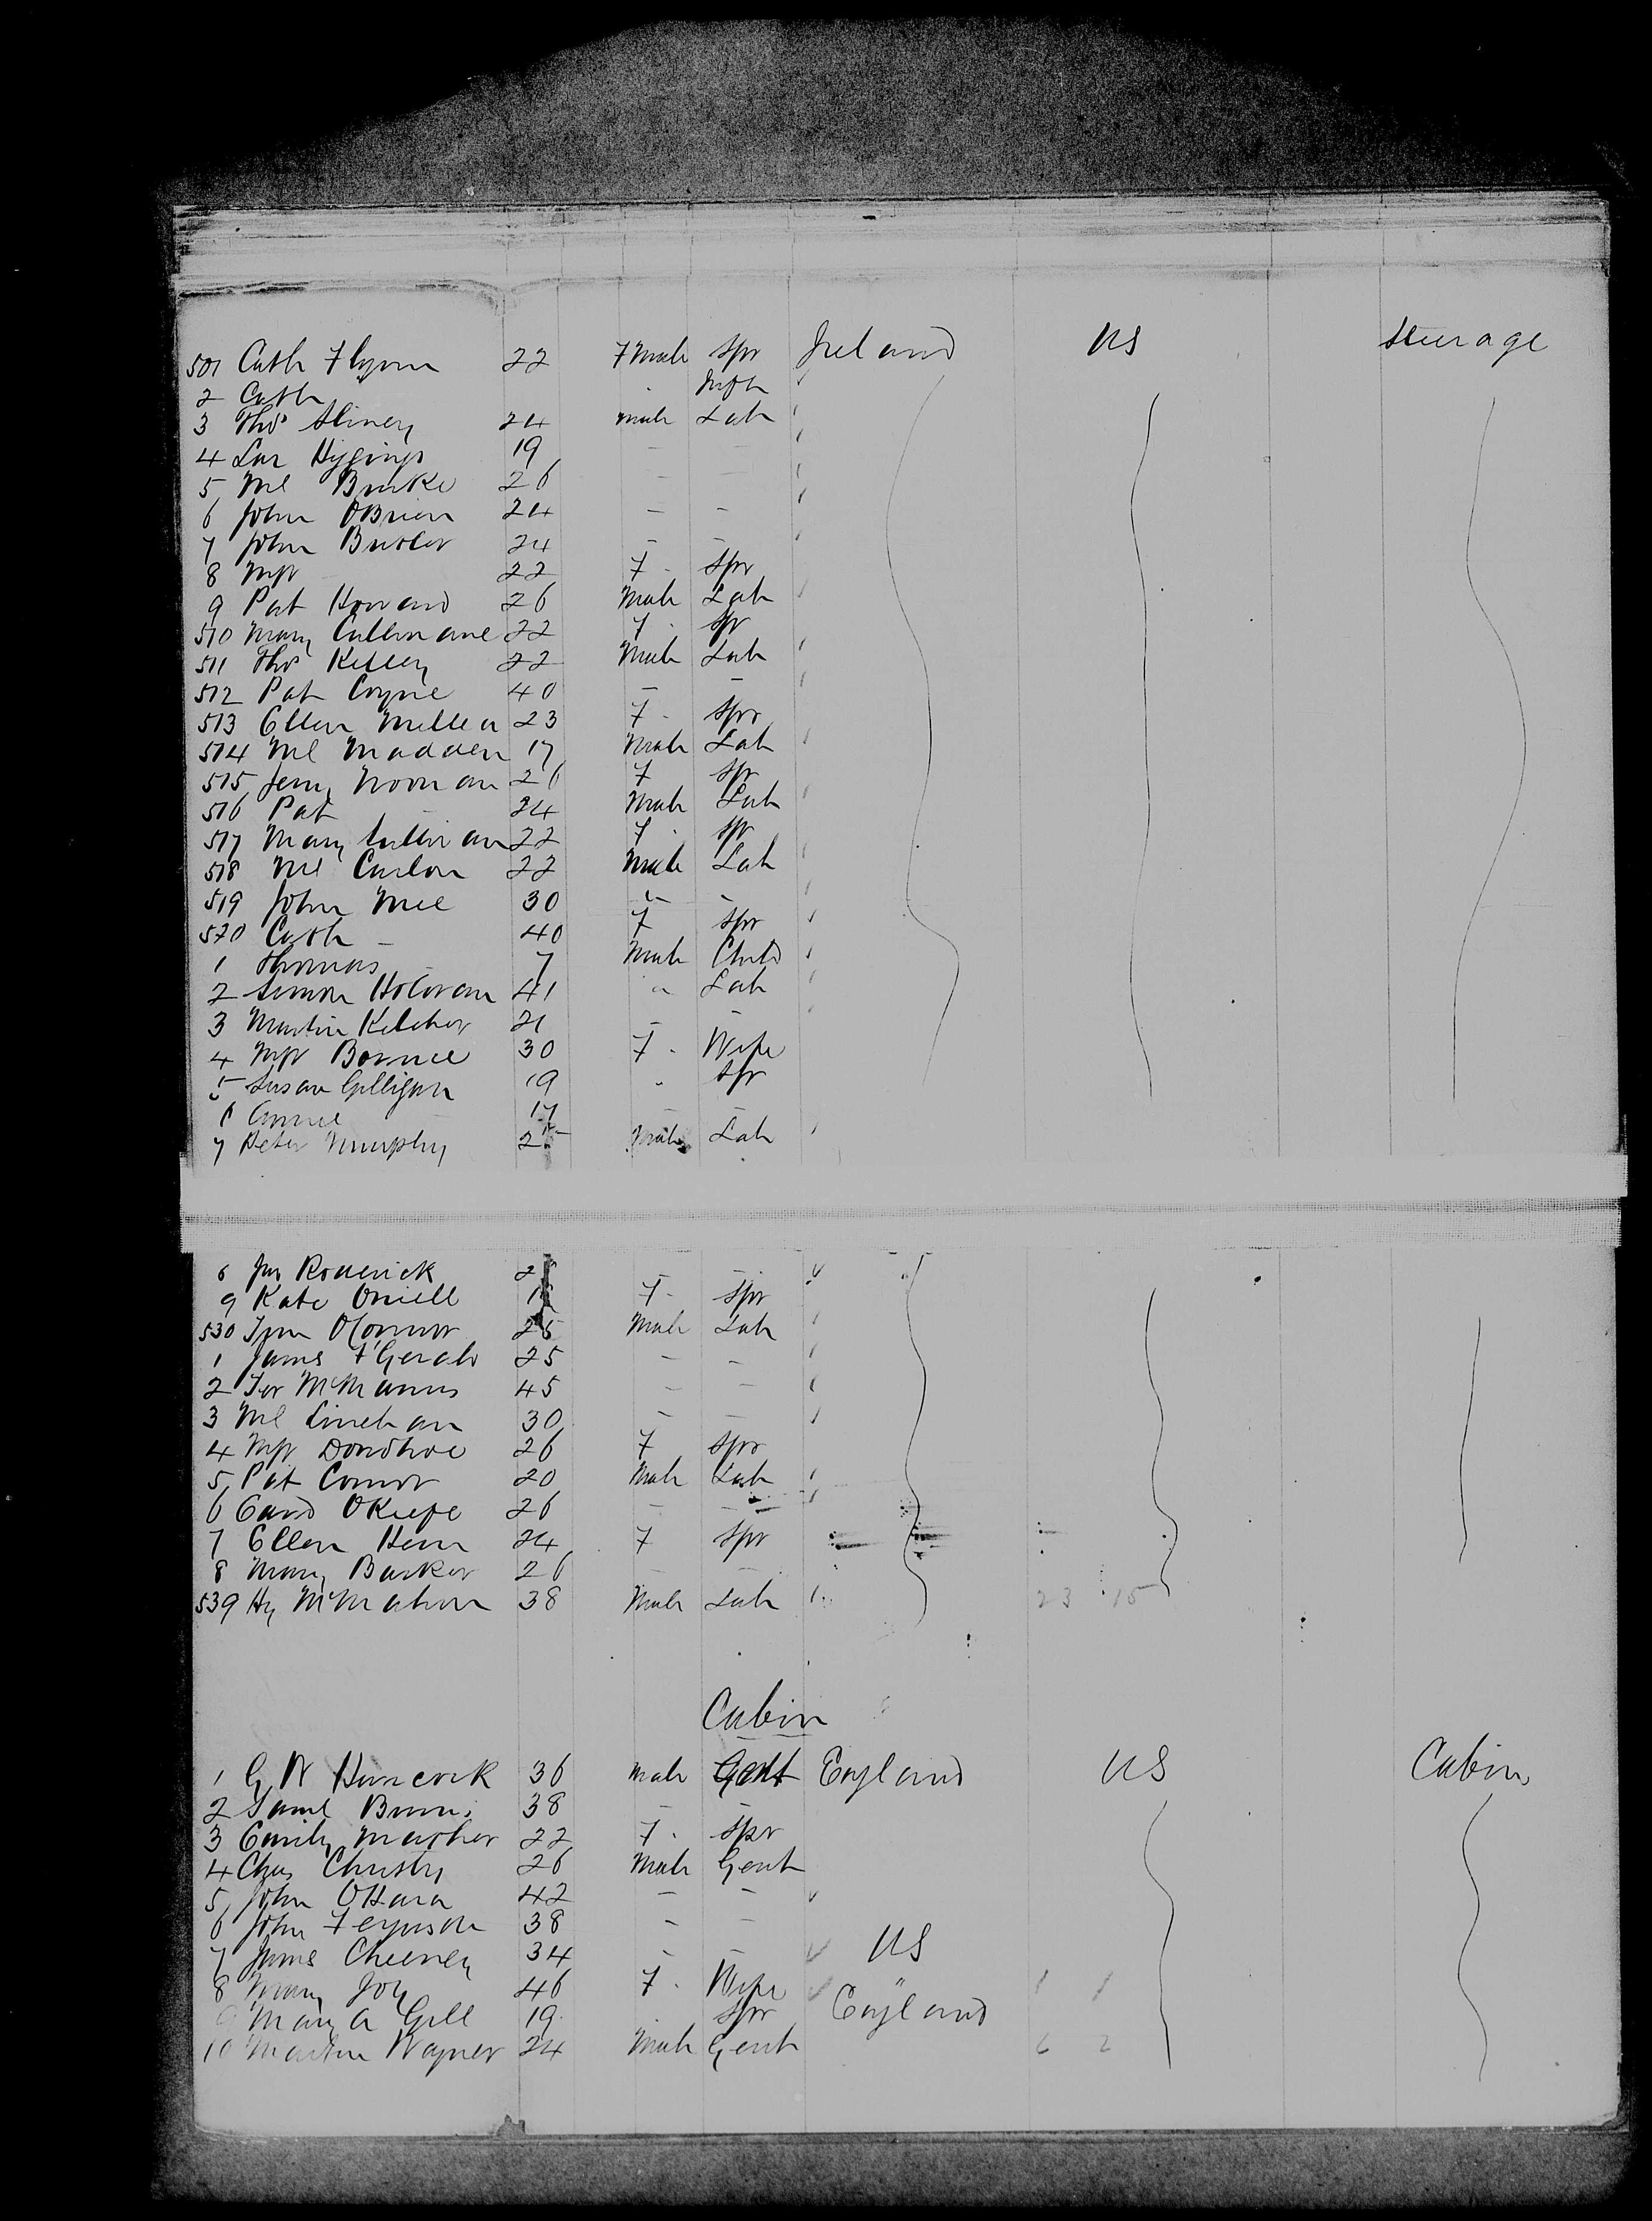 501 Cath Flynn 22 Fmale Spr Ireland US Steerage
2 Cath " Infn
3 Thos Sliney 24 male Lab
4 Lar Higgins 19 — —
5 Ml Burke 26 —
6 John OBrien 24 — —
7 John Butler 24 — —
8 Mgt 22 F. Spr
9 Pat Howard 26 Male Lab
510 Mary Cullinane 22 F. Spr
511 Thos Kelley 22 Male Lab
512 Pat Coyne 40 — —
513 Ellen 23 F. Spr
514 Ml Madden 17 Male Lab
515 Noonan 26 F Spr
516 Pat — 24 Male Lab
517 Mary Sullivan 22 F. Spr
518 Ml 22 Male Lab
519 John Mee 30 — —
520 Cath — 40 F Spr
1 Thomas — 7 Male Child
2 Simon Holoran 41 " Lab
3 Martin Keleher 21 — —
4 Mgt 30 F. Wife
5 Susan Gilligan 19 " Spr
6 Annie 17 — —
7 Peter Murphy Male Lab
8 Roderick — —
9 Kate Oniell F. Spr
530 OConnor 25 Male Lab
1 James F'Gerald 25 — —
2 Ter McManus 45 — —
3 Ml Linehan 30 — —
4 Mgt Donohoe 26 F Spr
5 Pat Connor 20 Male Lab
6 OKeefe 26 — —
7 Ellen 24 F Spr
8 Mary Barker 26 — —
539 Hy McMahon 38 Male Lab 23 15
Cabin
1 G W Hancock 36 male Gent England US Cabin
2 Saml 38 — —
3 Emily Mather 22 F. Spr
4 Chas Christy 26 Male Gent
5 John OHara 42 — —
6 John Ferguson 38 — —
7 James Cheeney 34 — — US
8 Mary Joy 46 F. Wife " 1 1
9 Mary A Gill 19 Spr England
10 Martin Wagner 24 Male Gent 6 2